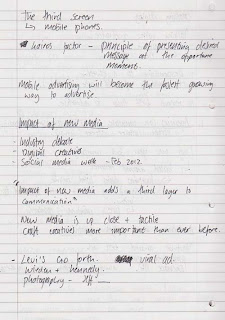 the third screen
↳ mobile phones.
kairos factor - principle of presenting desired
message at the opportune
moment.
Mobile advertising will become the fastest growing
way to advertise
Impact of new media
- Industry debate
- Digital creatives
- Social media week - Feb 2012.
"Impact of new media adds a third layer to
communication"
New media is up close + tactile
Craft creatives more important than ever before.
- Levi's Go forth. viral ad.
Wieden + Kennedy.
photography -